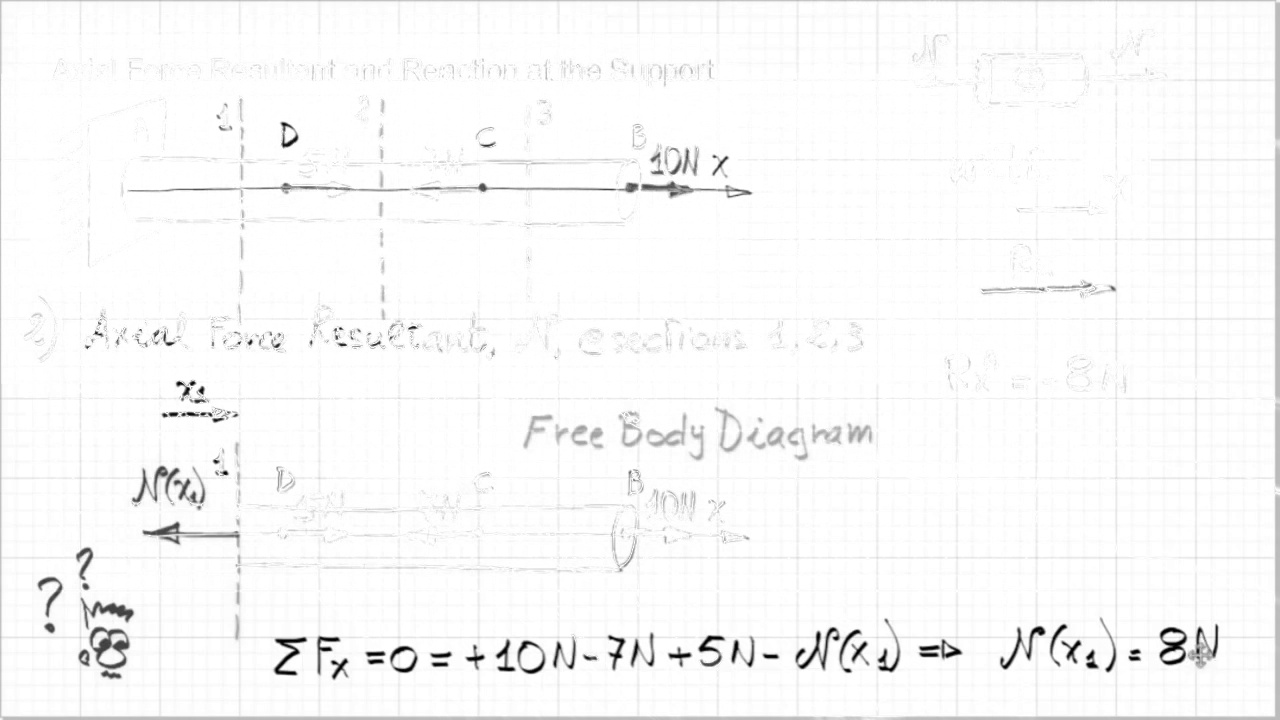 Axial Force Resultant and Reaction at the Support
N N
1 2 3
A D C B
5N 7N 10N x
x
R
2) Axial Force Resultant, N, @sections 1, 2, 3
Rx = -8N
x₁
Free Body Diagram
N(x₁) 1 D C B
5N 7N 10N x
? ?
ΣFx =0 = +10N-7N+5N- N(x₁) => N(x₁) = 8N